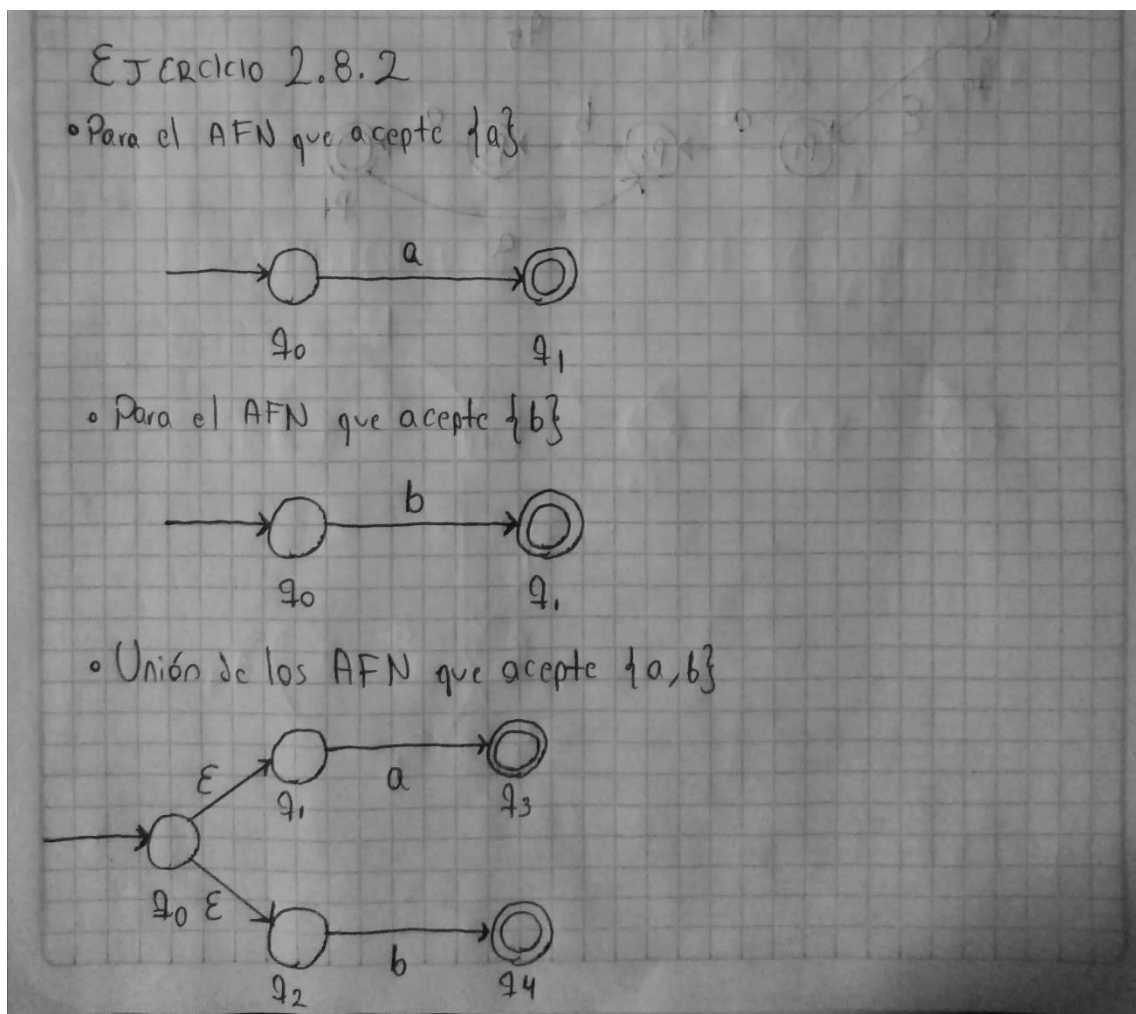 EJERCICIO 2.8.2
• Para el AFN que acepte {a}
a
q0 q1
• Para el AFN que acepte {b}
b
q0 q1
• Unión de los AFN que acepte {a,b}
ε a
q1 q3
q0 ε
b
q2 q4